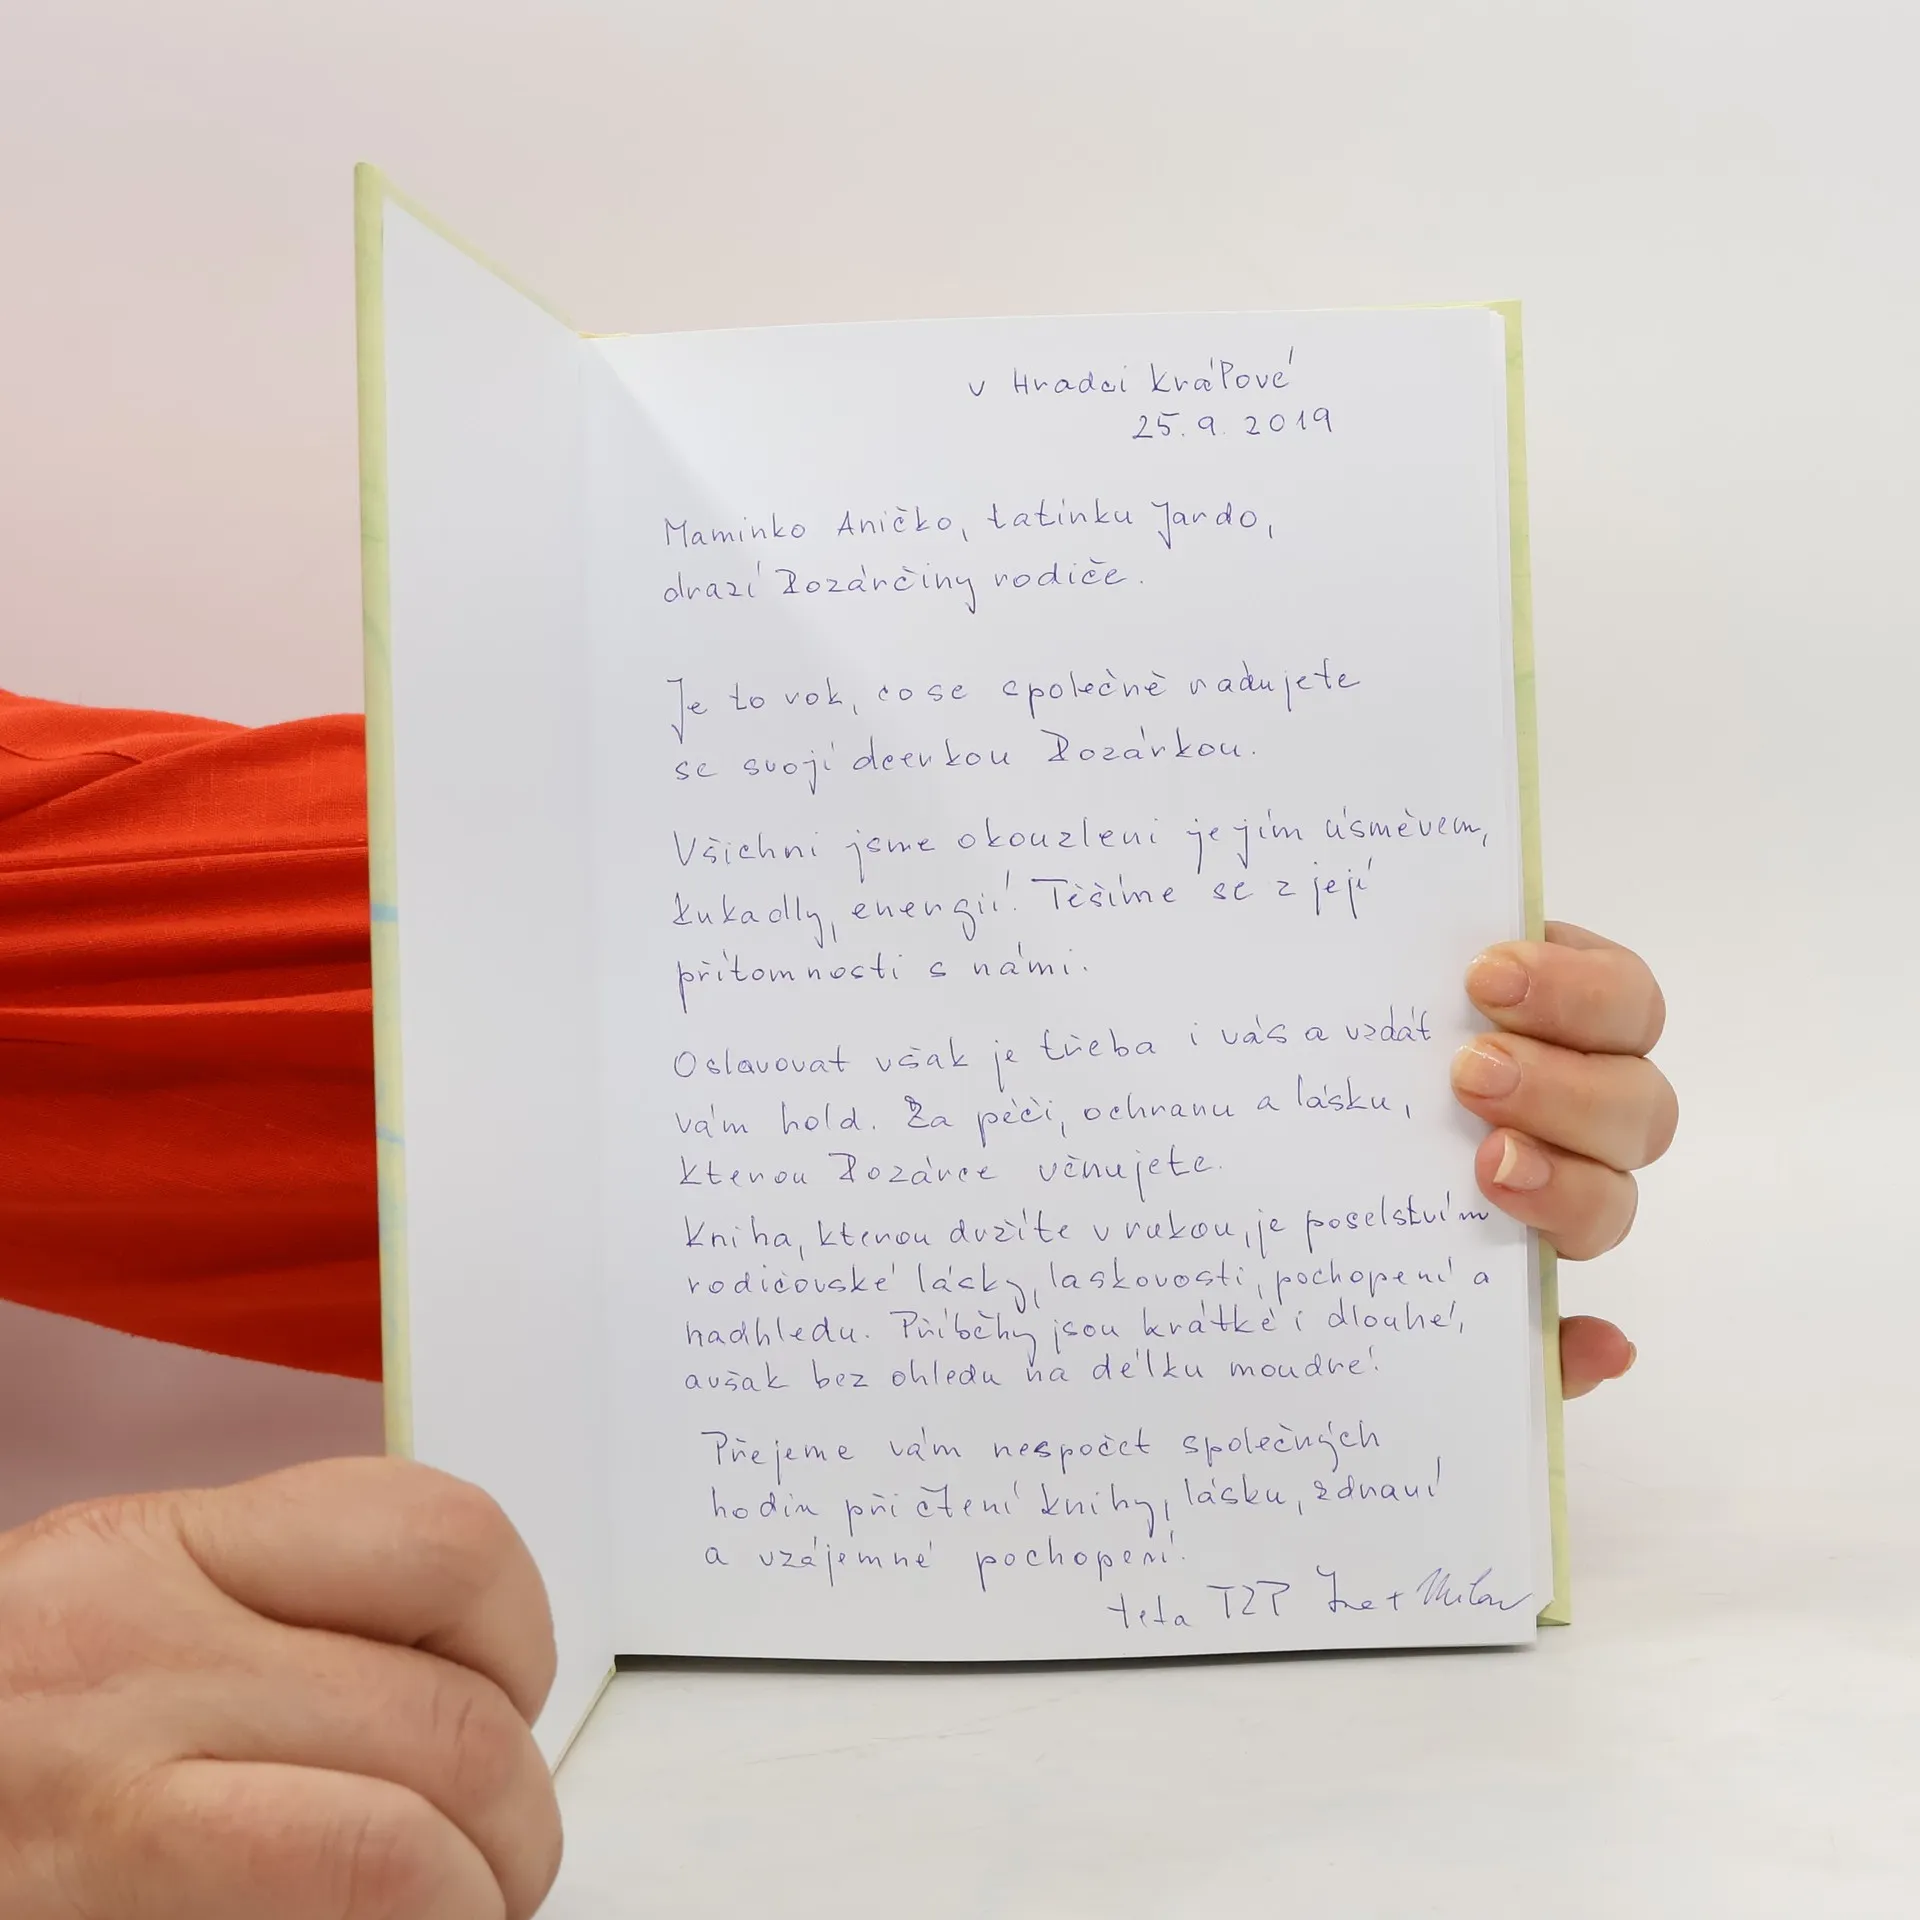 v Hradci Králové
25. 9. 2019
Maminko Aničko, tatínku Jardo,
drazí Rozárčiny rodiče.
Je to rok, co se společně radujete
se svojí dcerkou Rozárkou.
Všichni jsme okouzleni jejím úsměvem,
kukadly, energií! Těšíme se z její
přítomnosti s námi.
Oslavovat však je třeba i vás a vzdát
vám hold. Za péči, ochranu a lásku,
kterou Rozárce věnujete.
Kniha, kterou držíte v rukou, je poselstvím
rodičovské lásky, laskovosti, pochopení a
nadhledu. Příběhy jsou krátké i dlouhé,
avšak bez ohledu na délku moudré!
Přejeme vám nespočet společných
hodin při čtení knihy, lásku, zdraví
a vzájemné pochopení!
teta + Milan